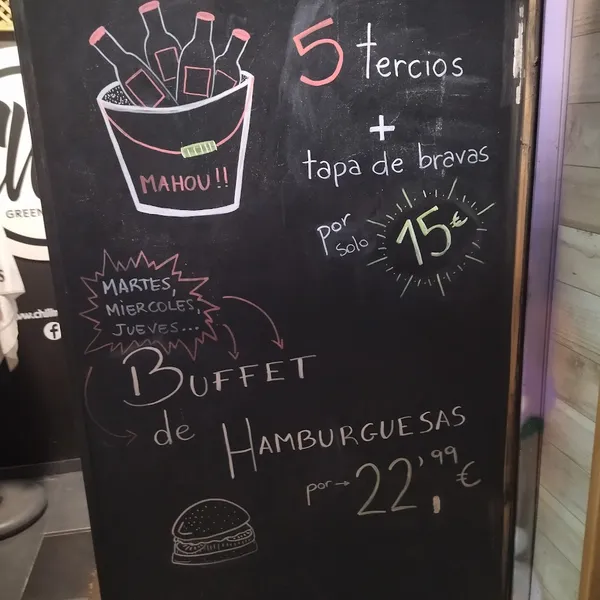 5 tercios
+
tapa de bravas
por
solo
15€
MAHOU!!
MARTES,
MIERCOLES,
JUEVES...
BUFFET
de HAMBURGUESAS
por→ 22,'99 €
GREEN